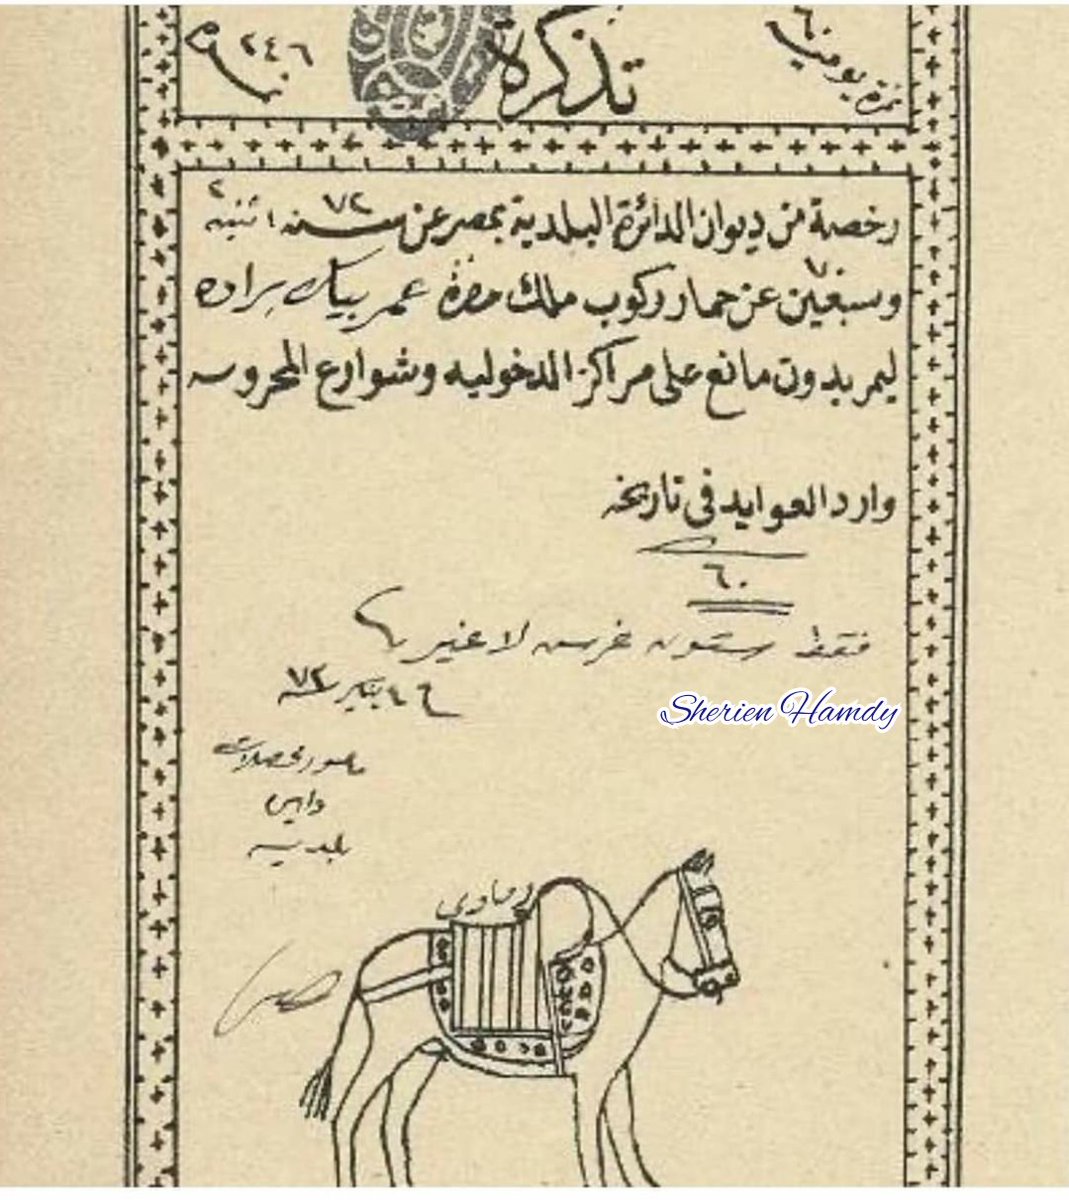 نمرة يومية ٦٠
تذكرة
٢٤٦
رخصة من ديوان الدائرة البلدية بمصر عن سنه ٧٢ اثنين
وسبعين عن حمار ركوب ملك حضرة عمر بيك براده
ليمر بدون مانع على مراكز الدخوليه وشوارع المحروسه
وارد العوايد فى تاريخه
٦٠
فقط ستون غرس لا غير
يناير سنة ٧٢
مأمور تحصيلات
بلديه
Sherien Hamdy